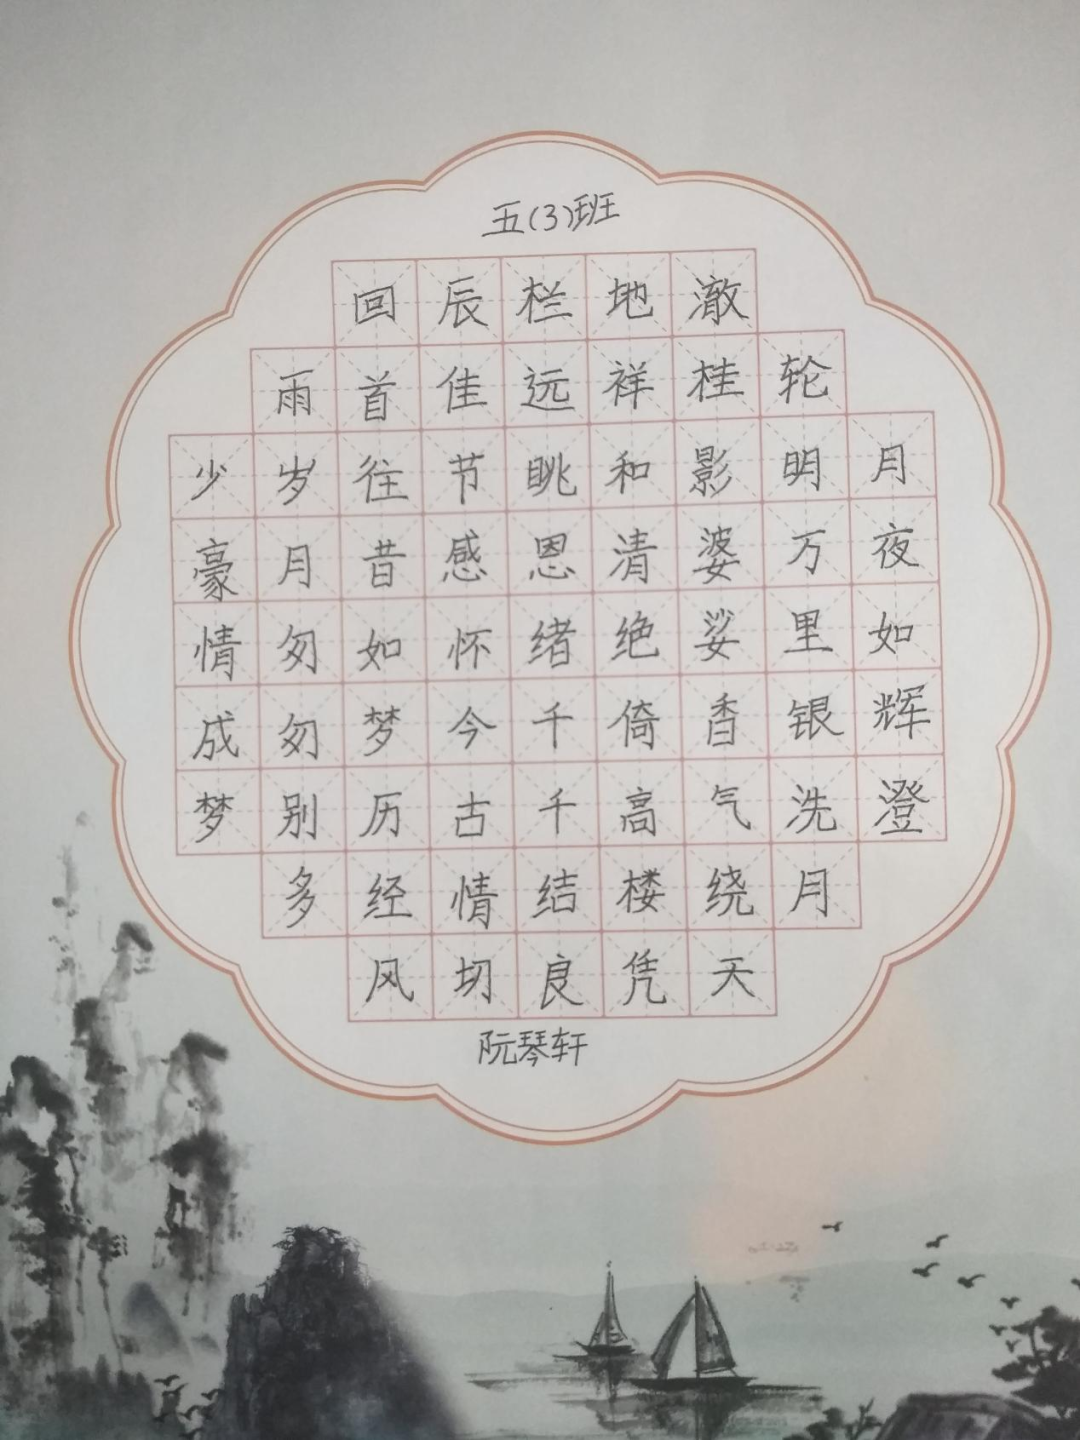 五(3)班
月夜如辉澄
轮明万里银洗月
澈桂影婆娑香气绕天
地祥和清绝倚高楼凭
栏远眺恩绪千千结良
辰佳节感怀今古情切
回首往昔如梦历经风
雨岁月匆匆别多
少豪情成梦
阮琴轩